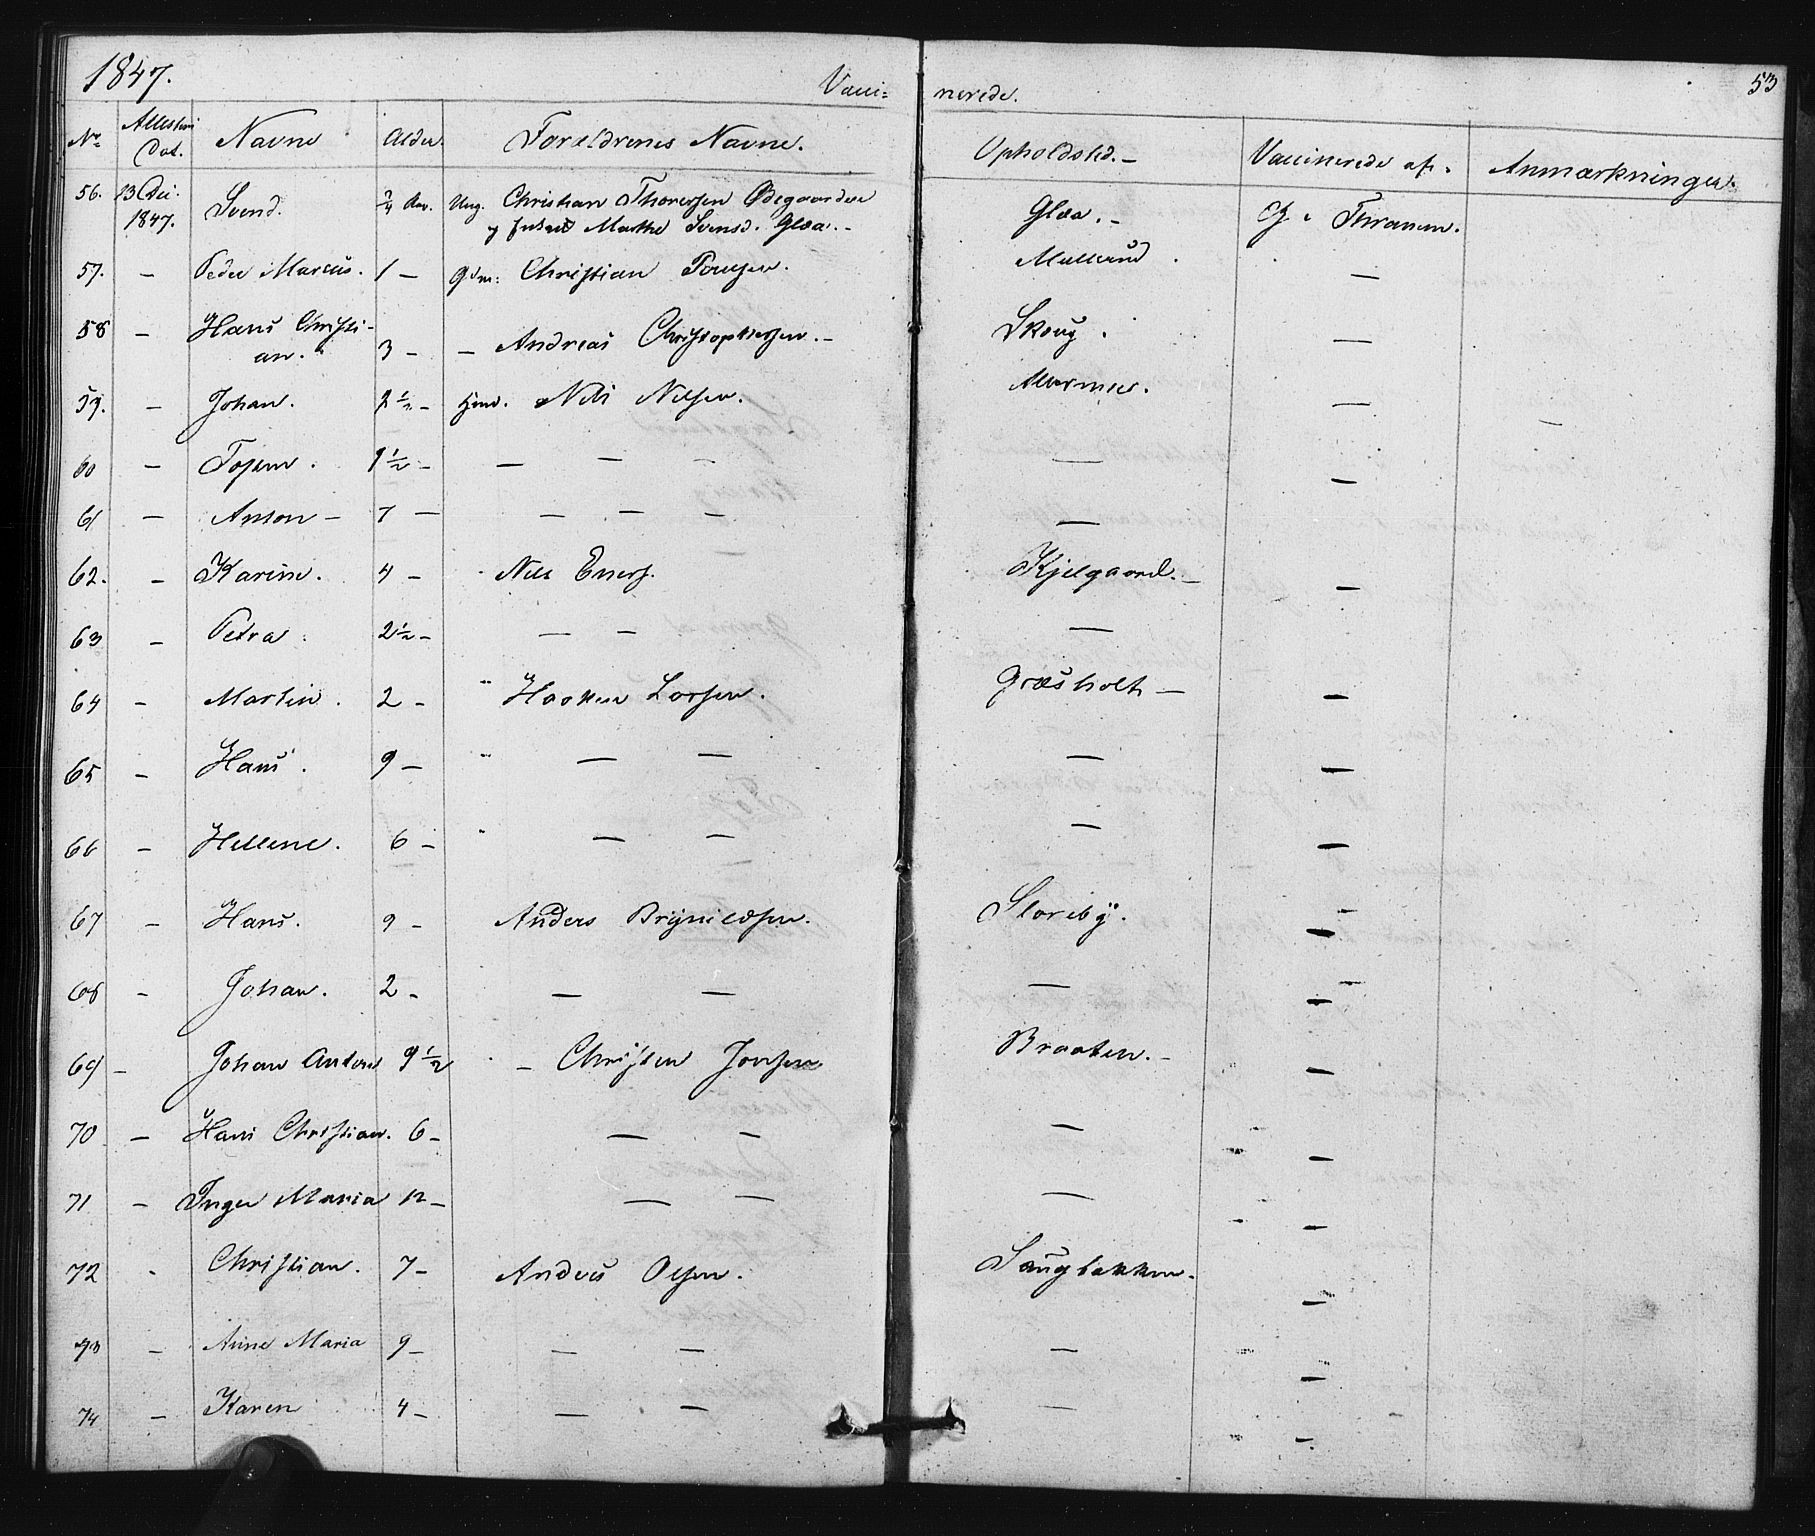 1847. Vacci= nerede. 53
No Attesters Dat. Navne Alder. Forældrenes Navne. Opholdsted.- Vaccinerede af. Anmærkninger.
56. 13 Dec. 1847. Svend. 3/4 Aar. Ung. Christian Thoresen Ødegaarden Glæa.- G. Thranem.
Marthe Svensd. Glæa.-
57. - Peder Marcus. 1 - Gdm: Christian Poulsen. -
58 - Hans Christi- 3 - - Andreas Christophersen.- Skoug. -
an.
59. - Johan. 2½ - Hmd. Nils Nilsen. -
60 - 1½ - - - - - -
61 - Anton - 7 - - - - - -
62. - Karine. 4 - Nils Eners. Kjelgaard.- -
63 - Petra 2½ - - - - -
64 - Martin. 2 - " Haaken Larsen. Græsholt - -
65 - Hans. 9 - " - - - -
66 - Hellene. 6 - " - - - -
67 - Hans. 9 - Anders Brynildsen. Storeby. -
68 - Johan. 2 - - - - -
69 - Johan Anton 9½ - Christen Jonsen Braaten.- -
70 - Hans Christian. 6 - - - - -
71 - Inger Maria 12 - - - - -
72 - Christian. 7 - Anders Olsen. Saugbakken. -
73 - Anne Maria 9 - - - - -
74 - Karen 4 - - - - -